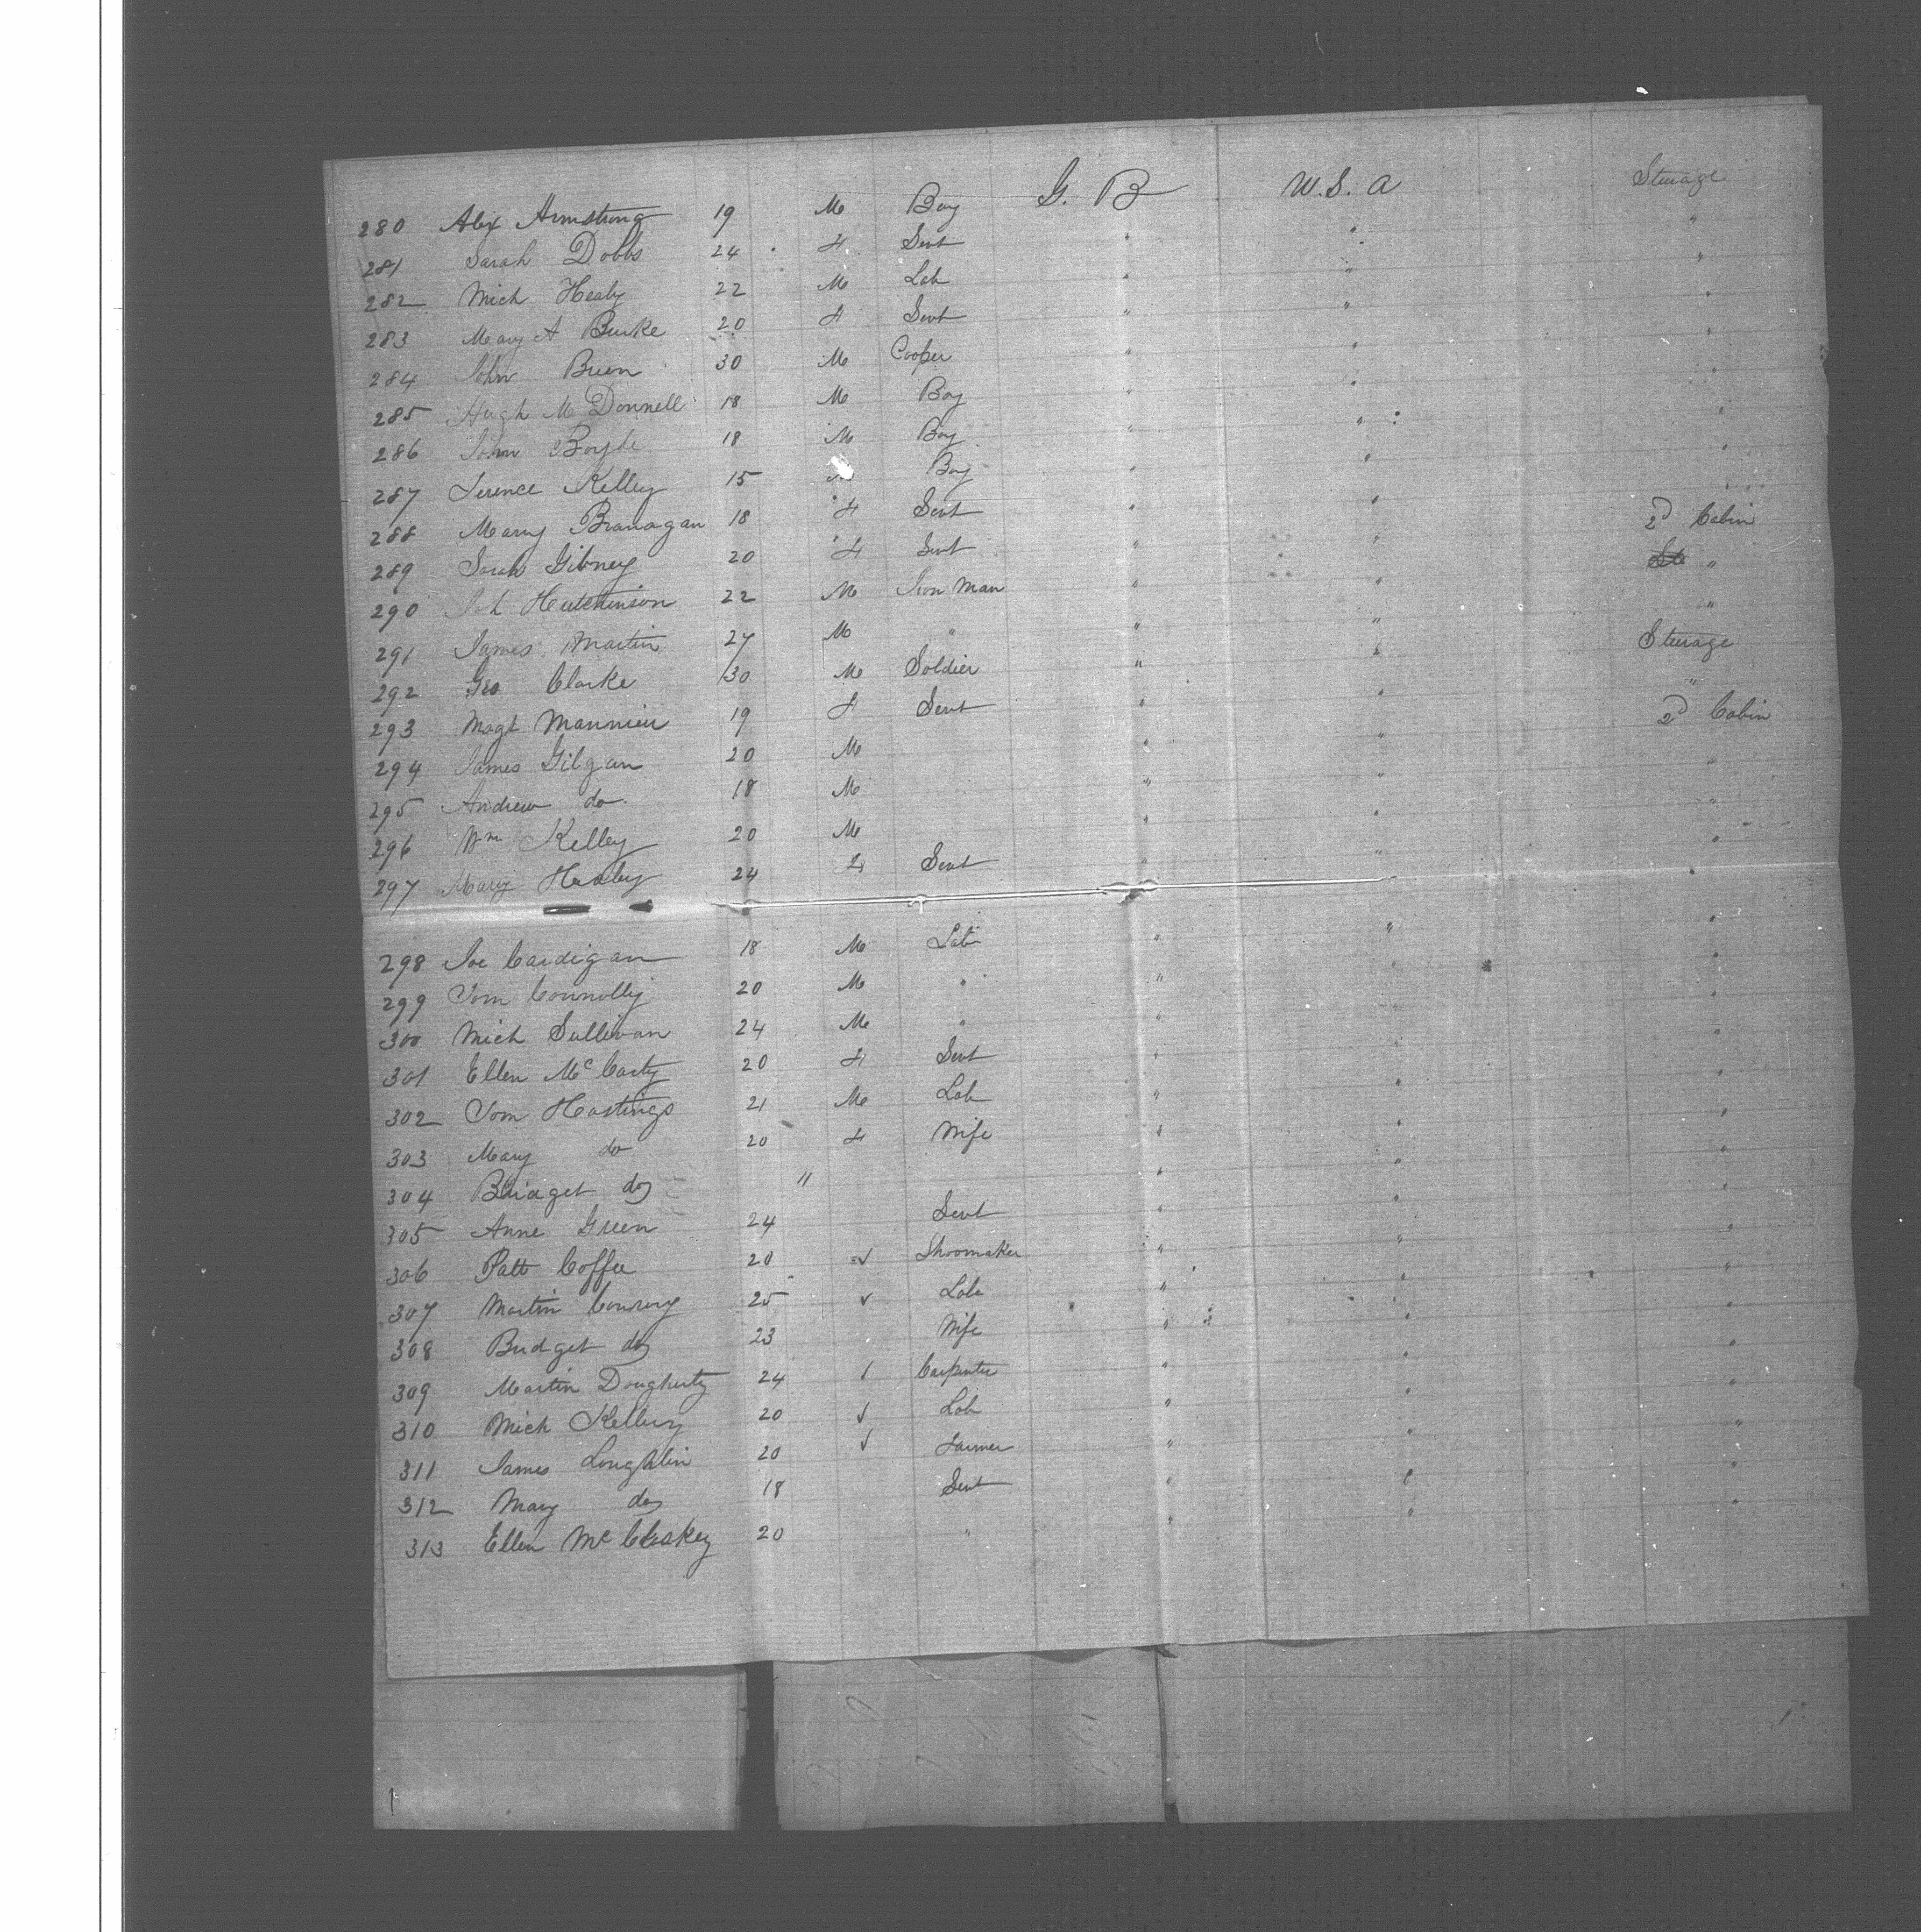 280 Alex Armstrong 19 M Boy G. B U. S. A Steerage
281 Sarah Dobbs 24 F Servt " " "
282 Mich Healy 22 M Lab " " "
283 Mary A Burke 20 F Servt " " "
284 John Breen 30 M Cooper " " "
285 Hugh McDonnell 18 M Boy " " "
286 John Boyle 18 M Boy " " "
287 Terence Kelley 15 M Boy " " "
288 Mary Branagan 18 F Servt " " "
289 Sarah Gibney 20 F Servt " " 2d Cabin
290 Hutchinson 22 M Iron Man " " "
291 James Martin 27 M " " " "
292 Geo Clarke 30 M Soldier " " Steerage
293 Magt 19 F Servt " " "
294 James Gilgan 20 M " " 2d Cabin
295 Andrew do 18 M " " "
296 Wm Kelley 20 M " " "
297 Mary Healey 24 F Servt " " "
298 Joe Cardigan 18 M Lab " " "
299 Tom Connolly 20 M " " " "
300 Mich Sullivan 24 M " " " "
301 Ellen McCarty 20 F Servt " " "
302 Tom Hastings 21 M Lab " " "
303 Mary do 20 F Wife " " "
304 Bridget do " " " "
305 Anne Green 24 Servt " " "
306 Patt Coffee 20 ✓ Shoomaker " " "
307 Martin Conroy 25 ✓ Lab " " "
308 Bridget do 23 Wife " " "
309 Martin Dougherty 24 / Carpenter " " "
310 Mich 20 ✓ Lab " " "
311 James Loughlin 20 ✓ Farmer " " "
312 Mary do 18 Servt " " "
313 Ellen McCloskey 20 " " " "